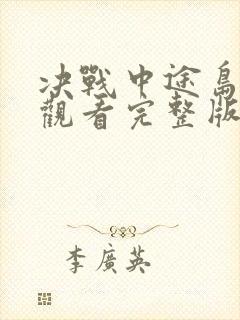 決戰中途島
觀看完整版
李廣英